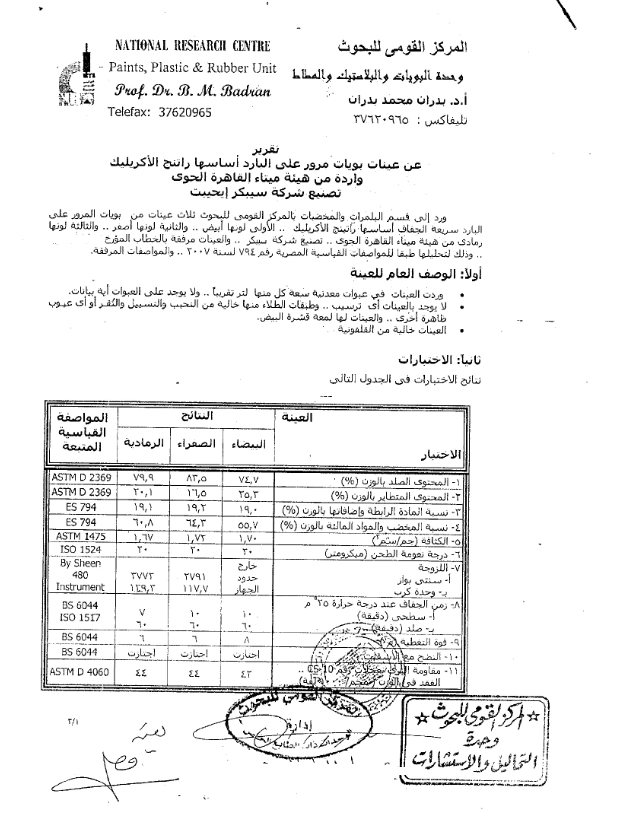 NATIONAL RESEARCH CENTRE
Paints, Plastic & Rubber Unit
Prof. Dr. B. M. Badran
Telefax: 37620965
المركز القومى للبحوث
وحدة البويات والبلاستيك والمطاط
أ.د. بدران محمد بدران
تليفاكس : ٣٧٦٢٠٩٦٥
تقرير
عن عينات بويات مرور على البارد أساسها راتنج الأكريليك
واردة من هيئة ميناء القاهرة الجوى
تصنيع شركة سيبكر إيجيبت
ورد إلى قسم البلمرات والمخضبات بالمركز القومى للبحوث ثلاث عينات من بويات المرور على
البارد سريعة الجفاف أساسها راتينج الأكريليك .. الأولى لونها أبيض .. والثانية لونها أصفر .. والثالثة لونها
رمادى من هيئة ميناء القاهرة الجوى .. تصنيع شركة سيبكر .. والعينات مرفقة بالخطاب المؤرخ
.. وذلك لتحليلها طبقا للمواصفات القياسية المصرية رقم ٧٩٤ لسنة ٢٠٠٧ .. والمواصفات المرفقة.
أولاً: الوصف العام للعينة
• وردت العينات فى عبوات معدنية سعة كل منها لتر تقريباً .. ولا يوجد على العبوات أية بيانات.
• لا يوجد بالعينات أى ترسيب .. وطبقات الطلاء منها خالية من التحبب والتسييل والنُقر أو أى عيوب
ظاهرة أخرى .. والعينات لها لمعة قشرة البيض.
• العينات خالية من القلفونية
ثانياً: الاختبارات
نتائج الاختبارات فى الجدول التالى
العينة النتائج المواصفة القياسية المتبعة
الاختبار البيضاء الصفراء الرمادية
١- المحتوى الصلد بالوزن (%) ٧٤,٧ ٨٣,٥ ٧٩,٩ ASTM D 2369
٢- المحتوى المتطاير بالوزن (%) ٢٥,٣ ١٦,٥ ٢٠,١ ASTM D 2369
٣- نسبة المادة الرابطة وإضافاتها بالوزن (%) ١٩,٠ ١٩,٢ ١٩,١ ES 794
٤- نسبة المخضب والمواد المالئة بالوزن (%) ٥٥,٧ ٦٤,٣ ٦٠,٨ ES 794
٥- الكثافة (جم/سم٣) ١,٧٠ ١,٧٢ ١,٦٧ ASTM 1475
٦- درجة نعومة الطحن (ميكرومتر) ٣٠ ٣٠ ٣٠ ISO 1524
٧- اللزوجة خارج حدود الجهاز By Sheen 480 Instrument
أ- سنتى بواز ٢٧٩١ ٣٧٧٢
ب- وحدة كرب ١١٧,٧ ١٤٩,٣
٨- زمن الجفاف عند درجة حرارة ٢٥° م BS 6044
أ- سطحى (دقيقة) ١٠ ١٠ ٧ ISO 1517
ب- صلد (دقيقة) ٦٠ ٦٠ ٦٠
٩- قوة التغطية ٨ ٦ ٦ BS 6044
١٠- النضح مع الأسفلت اجتازت اجتازت اجتازت BS 6044
١١- مقاومة البرى .. ٤٣ ٤٤ ٤٤ ASTM D 4060
المركز القومى للبحوث
إدارة
المركز القومى للبحوث
وحدة
التحاليل والاستشارات
٢/١